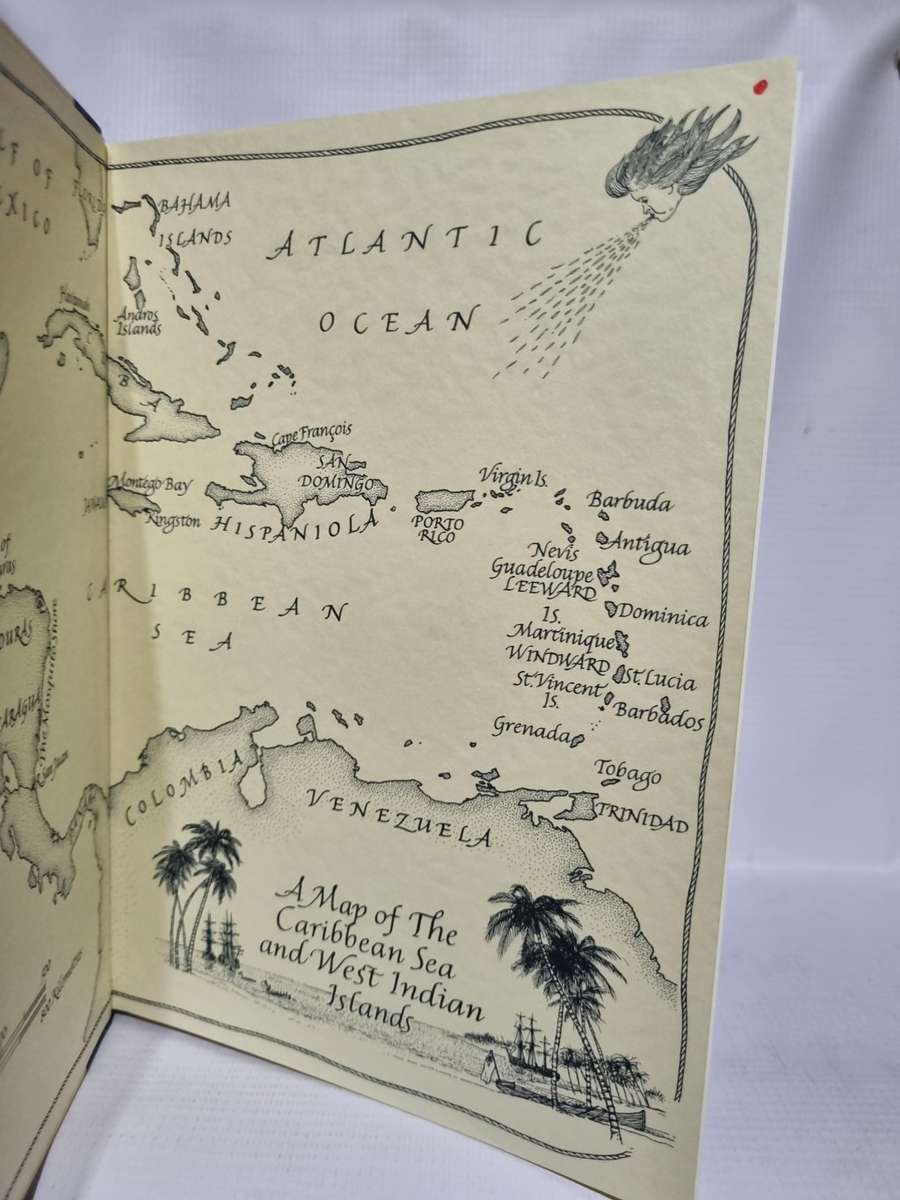 BAHAMA
ISLANDS
ATLANTIC
OCEAN
Andros
Islands
Cape François
SAN
DOMINGO
HISPANIOLA
Montego Bay
Kingston
PORTO
RICO
Virgin Is.
Barbuda
Antigua
Nevis
Guadeloupe
LEEWARD
Is.
Dominica
Martinique
WINDWARD
St. Lucia
St. Vincent
Is.
Barbados
Grenada
Tobago
TRINIDAD
CARIBBEAN
SEA
COLOMBIA
VENEZUELA
A Map of The
Caribbean Sea
and West Indian
Islands